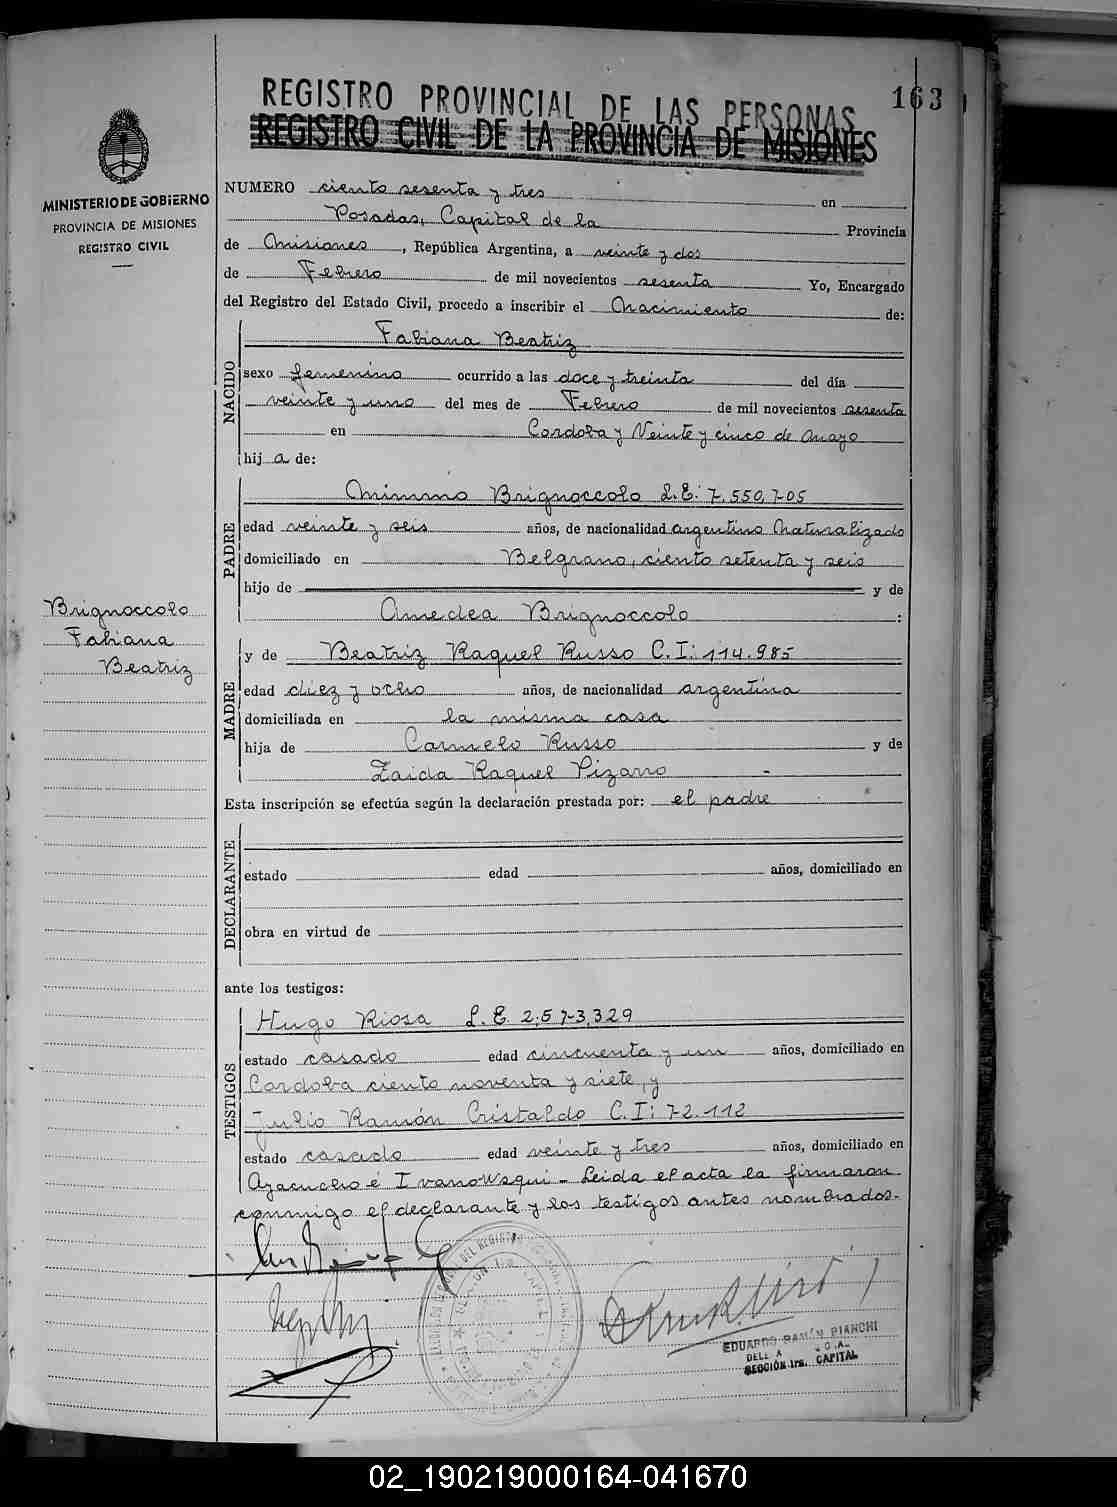 163
REGISTRO PROVINCIAL DE LAS PERSONAS
REGISTRO CIVIL DE LA PROVINCIA DE MISIONES
MINISTERIO DE GOBIERNO
PROVINCIA DE MISIONES
REGISTRO CIVIL
NUMERO ciento sesenta y tres en
Posadas, Capital de la Provincia
de Misiones, República Argentina, a veinte y dos
de Febrero de mil novecientos sesenta Yo, Encargado
del Registro del Estado Civil, procedo a inscribir el Nacimiento de:
NACIDO
Fabiana Beatriz
sexo femenino ocurrido a las doce y treinta del día
veinte y uno del mes de Febrero de mil novecientos sesenta
en Cordoba y Veinte y cinco de Mayo
hij a de:
PADRE
Mimmo Brignoccolo L.E: 7.550,705
edad veinte y seis años, de nacionalidad argentino Naturalizado
domiciliado en Belgrano, ciento setenta y seis
hijo de y de
Amedea Brignoccolo :
Brignoccolo
Fabiana
Beatriz
MADRE
y de Beatriz Raquel Russo C.I: 114.985
edad diez y ocho años, de nacionalidad argentina
domiciliada en la misma casa
hija de Carmelo Russo y de
Zaida Raquel Pizarro -
Esta inscripción se efectúa según la declaración prestada por: el padre
DECLARANTE
estado edad años, domiciliado en
obra en virtud de
ante los testigos:
TESTIGOS
Hugo Riosa L.E. 2,573,329
estado casado edad cincuenta y un años, domiciliado en
Cordoba ciento noventa y siete, y
Julio Ramón Cristaldo C.I: 72.112
estado casado edad veinte y tres años, domiciliado en
Ayacucho é Ivanowsqui - Leida el acta la firmaron
conmigo el declarante y los testigos antes nombrados.-
EDUARDO RAMÓN BIANCHI
SECCIÓN 1ra. CAPITAL
02_190219000164-041670